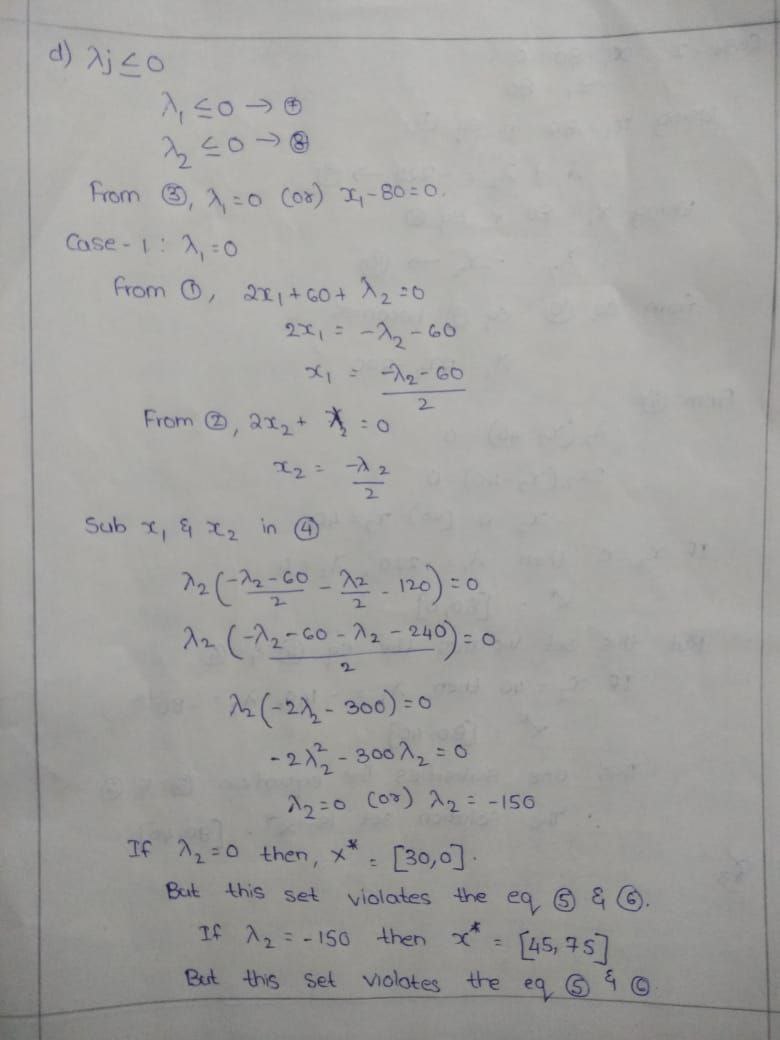 d) λj ≤ 0
λ₁ ≤ 0 → ⑦
λ₂ ≤ 0 → ⑧
From ③, λ₁ = 0 (or) x₁ - 80 = 0.
Case - 1 : λ₁ = 0
From ①, 2x₁ + 60 + λ₂ = 0
2x₁ = -λ₂ - 60
x₁ = (-λ₂ - 60)/2
From ②, 2x₂ + λ₂ = 0
x₂ = -λ₂/2
Sub x₁ & x₂ in ④
λ₂((-λ₂ - 60)/2 - λ₂/2 - 120) = 0
λ₂((-λ₂ - 60 - λ₂ - 240)/2) = 0
λ₂(-2λ₂ - 300) = 0
-2λ₂² - 300λ₂ = 0
λ₂ = 0 (or) λ₂ = -150
If λ₂ = 0 then, x* = [30,0].
But this set violates the eq ⑤ & ⑥.
If λ₂ = -150 then x* = [45,75]
But this set violates the eq ⑤ & ⑥